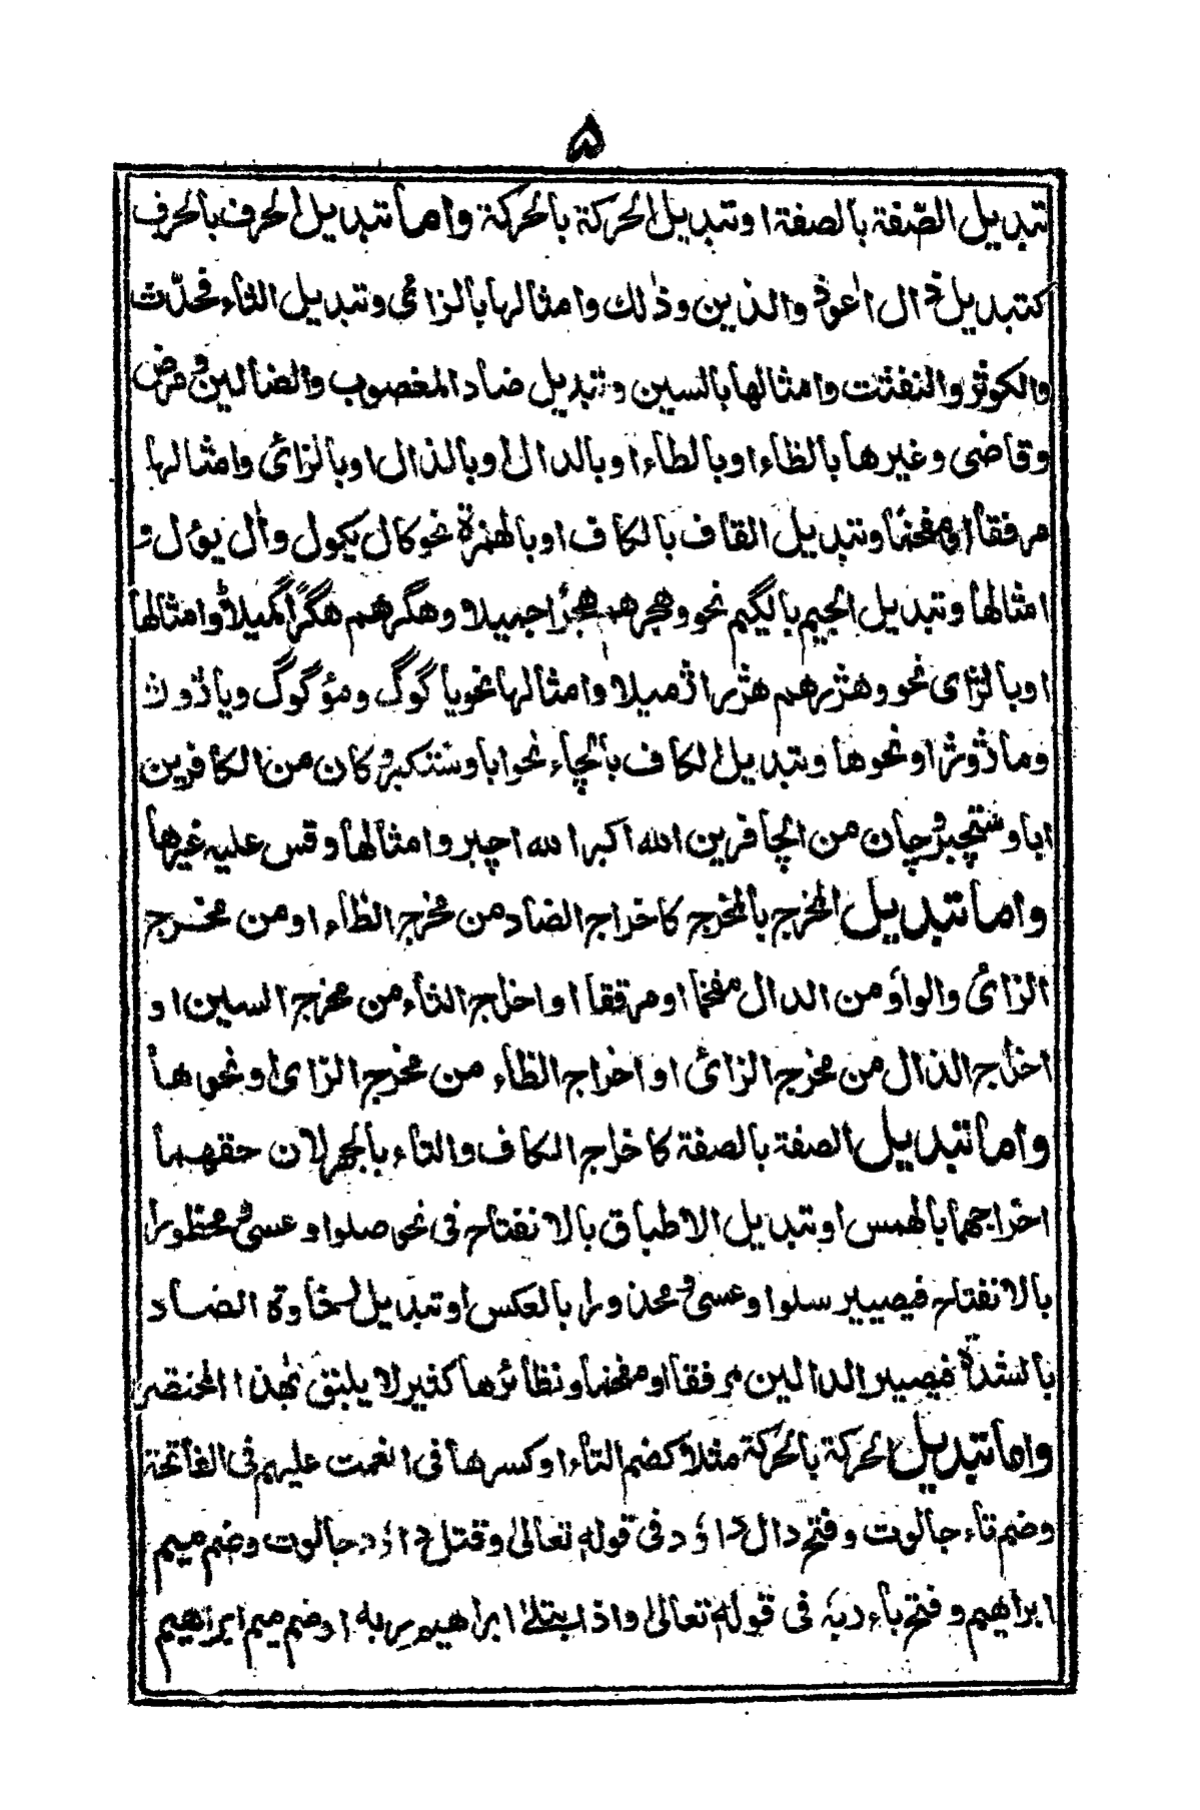 ۵
تبدیل الصّفة بالصفة او تبدیل الحركة بالحركة واما تبدیل الحرف بالحرف
كتبدیل ذال اعوذ والذین وذٰلك وامثالها بالزائی وتبدیل الثاء فحدّث
والكوثر والنفثت وامثالها بالسین وتبدیل ضاد المغضوب والضالین ومرض
وقاضی وغیرها بالظاء او بالطاء او بالدال او بالذال او بالزائی وامثالها
مرققا او مفخما وتبدیل القاف بالكاف او بالهمزة نحو كال یكول واٰل یؤل و
امثالها وتبدیل الجیم بالگیم نحو وهجرهم هجرًا جمیلا وهگرهم هگرًا گمیلاً وامثالها
او بالژای نحو وهژرهم هژرا ژمیلا وامثالها نحو یاگوگ ومؤگوگ ویاژوژ
وماژوژ او نحوها وتبدیل الكاف بالچاء نحو ابا وستكبر وكان من الكافرین
ابا وستچبر وچان من الچافرین الله اكبر الله اچبر وامثالها وقس علیه غیرها
واما تبدیل المخرج بالمخرج كاخراج الضاد من مخرج الظاء او من مخرج
الزائی والواو من الدال مفخما او مرققا او اخراج الثاء من مخرج السین او
اخراج الذال من مخرج الزائی او اخراج الظاء من مخرج الزای او نحوها
واما تبدیل الصفة بالصفة كاخراج الكاف والتاء بالجهر لان حقهما
اخراجهما بالهمس او تبدیل الاطباق بالانفتاح فی نحو صلوا وعسٰی محظورا
بالانفتاح فیصیر سلوا وعسٰی ومحذورا بالعكس او تبدیل رخاوة الضاد
بالشدة فیصیر الدالین مرققا او مفخما ونظائرها كثیر لا یلیق بهٰذا المختصر
واما تبدیل الحركة بالحركة مثلا كضم التاء او كسرها فی انعمت علیهم فی الفاتحة
وضم تاء جالوت وفتح دال داؤد فی قوله تعالیٰ وقتل داؤد جالوت وضم میم
ابراهیم وفتح باء ربهٗ فی قوله تعالیٰ واذ ابتلیٰ ابراهیم ربه اوضم میم ابراهیم